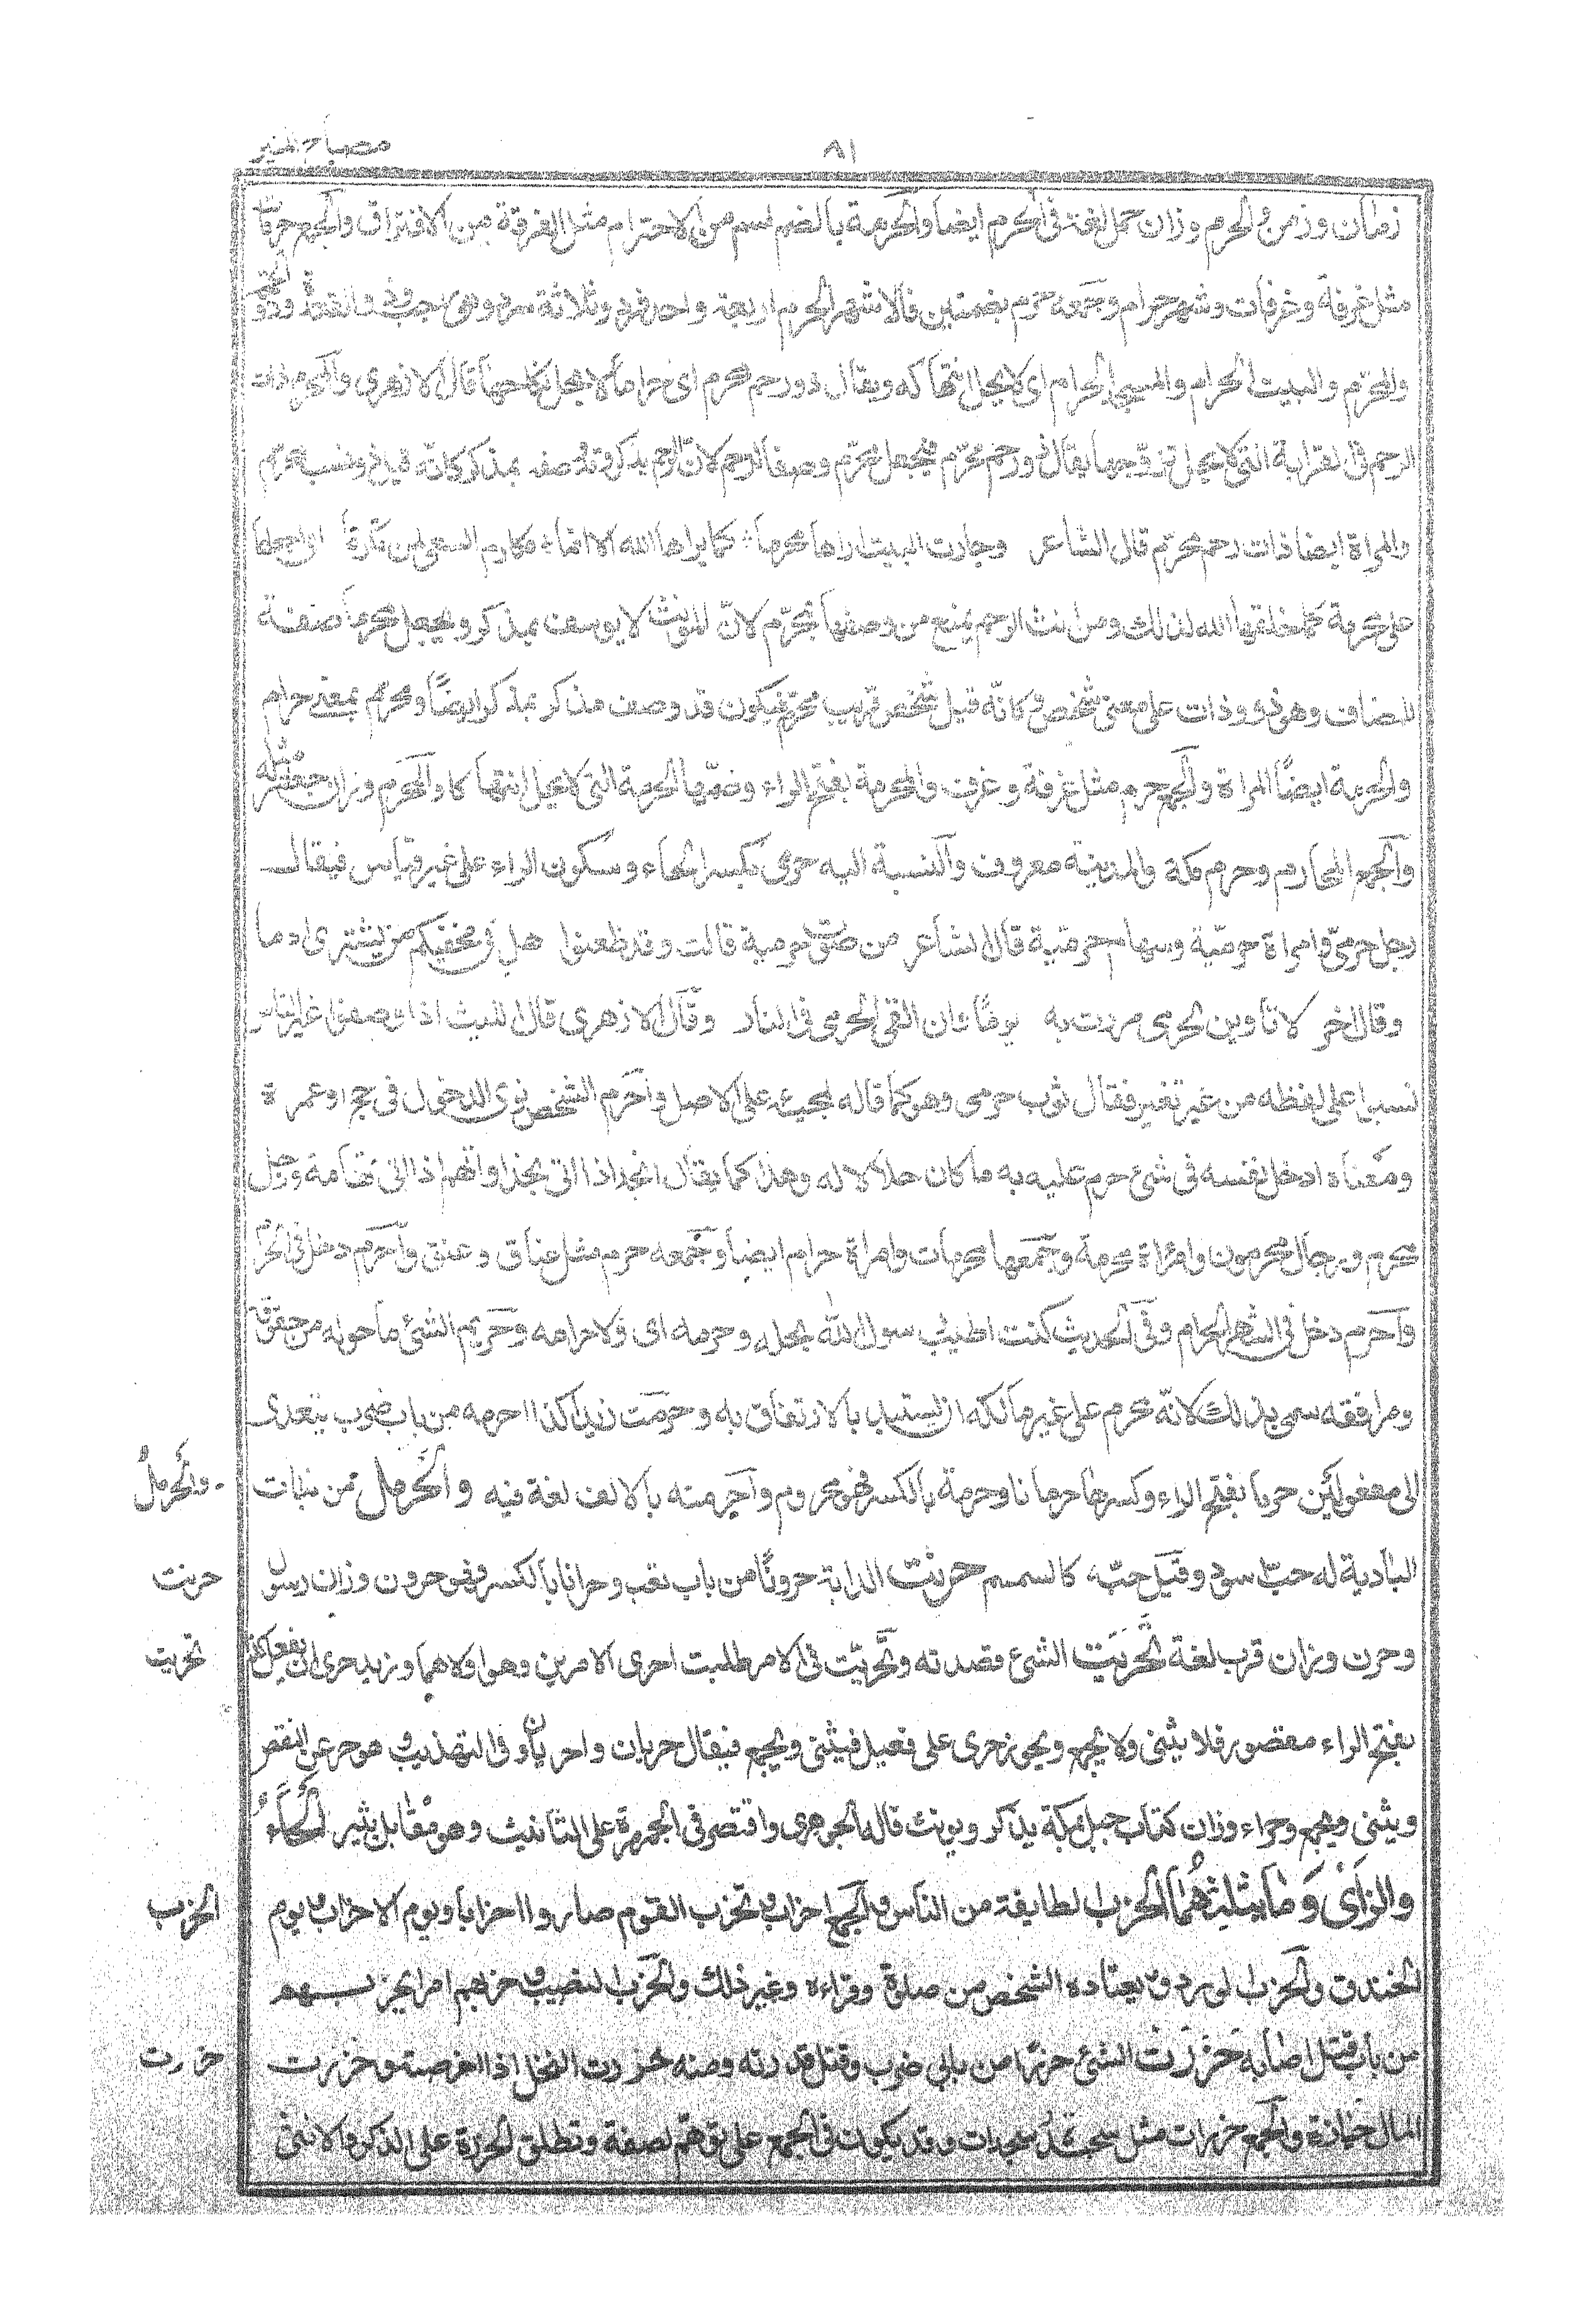 مصباح المنير
٨١
زمان وزمن والحرم وزان حمل لغة فى الحرم ايضا والحرمة بالضم اسم من الاحترام مثل الفرقة من الافتراق والجمع حرمات
مثل غرفة وغرفات وشهر حرام وجمعه حرم بضمتين فالاشهر الحرم اربعة واحد فرد وثلاثة سرد وهى رجب وذوالقعدة وذوالحجة
والمحرم والبيت الحرام والمسجد الحرام اى لا يحل انتهاكه ويقال ذو رحم محرم اى حراما لا يحل نكاحها قال الازهرى والمحرم ذات
الرحم فى القرابة التى لا يحل تزوجها يقال ذو رحم محرم فيجعل محرم وصفا لرحم لان الرحم يذكر وقد وصفه بمذكر كانه قيل ذو نسب محرم
والمراة ايضا ذات رحم محرم قال الشاعر وجارت البيت اراها محرما كما براها الله الا انما مكارم السعى لمن تكرما اى اجعلها
على محرمة كما خلقها الله لذلك ومن انث الرحم يمنع من وصفها بمحرم لان المؤنث لا يوصف بمذكر ويجعل محرما صفة
للمضاف وهو ذو وذات على معنى شخص كانه قيل شخص قريب محرم فيكون قد وصف مذكر بمذكر ايضًا ومحرم بمعنى حرام
والحرمة ايضًا المراة والجمع حرم مثل غرفة وغرف والمحرمة بفتح الراء وضمها الحرمة التى لا يحل انتهاكها والمحرم وزان جعفر مثله
والجمع المحارم وحرم مكة والمدينة معروف والنسبة اليه حرمى بكسر الحاء وسكون الراء على غير قياس فيقال
رجل حرمى وامراة حرمية وسهام حرمية قال الشاعر من صوت حرمية قالت وقد ظعنوا هل فى مخفيكم من يشترى ادما
وقال اخر لا تاوين لحرمى مررت به يومًا وان القى الحرمى فى النار وقال الازهرى قال الليث اذا نسبوا غير الناس
نسبوا على لفظه من غير تغير فقال ثوب حرمى وهو كما قاله لمجيئه على الاصل واحرم الشخص نوى الدخول فى حج او عمرة
ومعناه ادخل نفسه فى شئ حرم عليه به ما كان حلالا له وهذا كما يقال انجد اذا اتى نجدا واتهم اذا اتى تهامة ورجل
محرم ورجال محرمون وامراة محرمة وجمعها محرمات وامراة حرام ايضا وجمعه حرم مثل عناق وعنق واحرم دخل فى الحرم
واحرم دخل فى الشهر الحرام وفى الحديث كنت اطيب رسول الله لحله وحرمه اى ولاحرامه وحريم الشئ ما حوله من حقوقه
ومرافقه سمى بذلك لانه محرم على غير مالكه ان يستبد بالارتفاق به وحرمت زيدا كذا احرمه من باب ضرب يتعدى
الى مفعولين حرما بفتح الراء وكسرها حرمانا وحرمة بالكسر فهو محروم واحرمته بالالف لغة فيه والحرمل من نبات
والحرمل
البادية له حب اسود وقيل حب كالسمسم حرنت الدابة حرونًا من باب تعب وحرانا بالكسر فهو حرون وزان رسول
حرنت
وحرن وزان قرب لغة تحريت الشئ قصدته وتحريت فى الامر طلبت احرى الامرين وهو اولاهما وزيد حرى ان يفعل كذا
تحريت
بفتح الراء مقصور فلا يثنى ولا يجمع ويجوز حرى على فعيل فيثنى ويجمع فيقال حريان واحرياء وفى التهذيب هو حر عن النقص
ويثنى ويجمع وحراء وزان كتاب جبل بمكة يذكر ويونث قاله الجوهرى واقتصر فى الجمهرة على التانيث وهو مقابل ثبير الحاء
والزاى وما يثلثهما الحزب الطايفة من الناس والجمع احزاب وتحزب القوم صاروا احزابا ويوم الاحزاب يوم
الحزب
الخندق والحزب الورد يعتاده الشخص من صلوة وقراءة وغير ذلك والحزب النصيب وحزبهم امر يحزبهم
من باب قتل اصابه حزرت الشئ حزرا من بابى ضرب وقتل قدرته ومنه حزرت النخل اذا خرصته وحزرت
حزرت
المال خيارة والجمع حزرات مثل سجدة وسجدات وقد يكون فى الجمع على توهم الصفة وتطلق الحزرة على الذكر والانثى